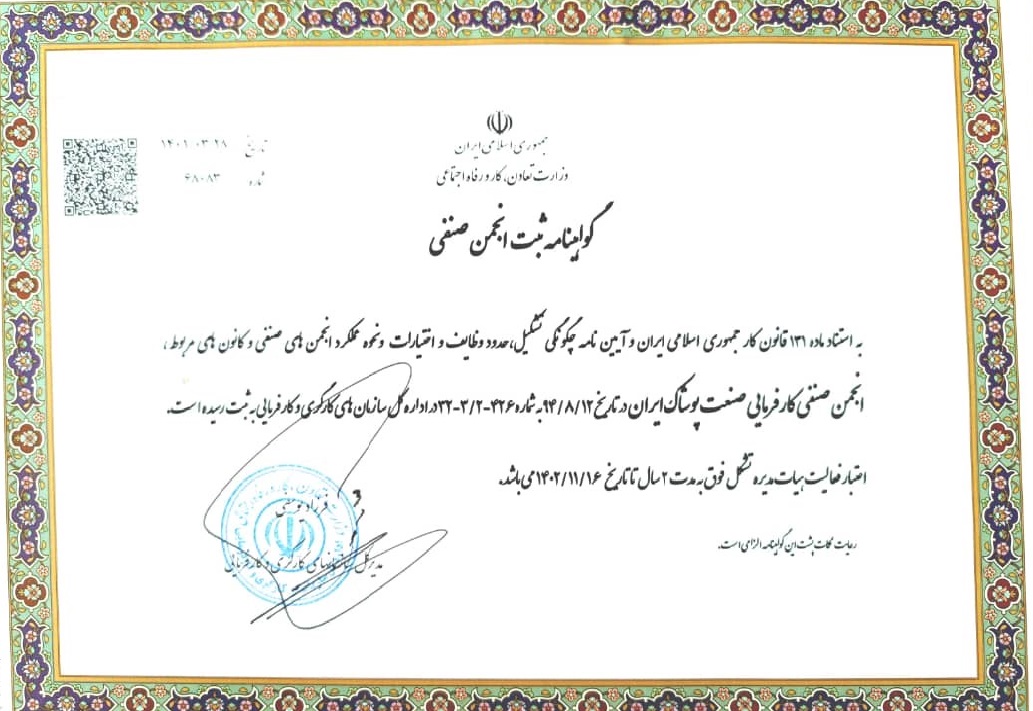 جمهوری اسلامی ایران
وزارت تعاون، کار و رفاه اجتماعی
تاریخ ۱۴۰۱/۰۳/۲۸
شماره ۴۸۰۸۳
گواهینامه ثبت انجمن صنفی
به استناد ماده ۱۳۱ قانون کار جمهوری اسلامی ایران و آیین نامه چگونگی تشکیل، حدود وظایف و اختیارات ونحوه عملکرد انجمن های صنفی و کانون های مربوط،
انجمن صنفی کارفرمایی صنعت پوشاک ایران در تاریخ ۹۴/۸/۱۲ به شماره ۴۲۶-۳/۲-۳۲ در اداره کل سازمان های کارگری و کارفرمایی به ثبت رسیده است.
اعتبار فعالیت هیات مدیره تشکل فوق به مدت ۲ سال تا تاریخ ۱۴۰۲/۱۱/۱۶ می باشد.
رعایت نکات پشت این گواهینامه الزامی است.
مدیرکل سازمانهای کارگری و کارفرمایی